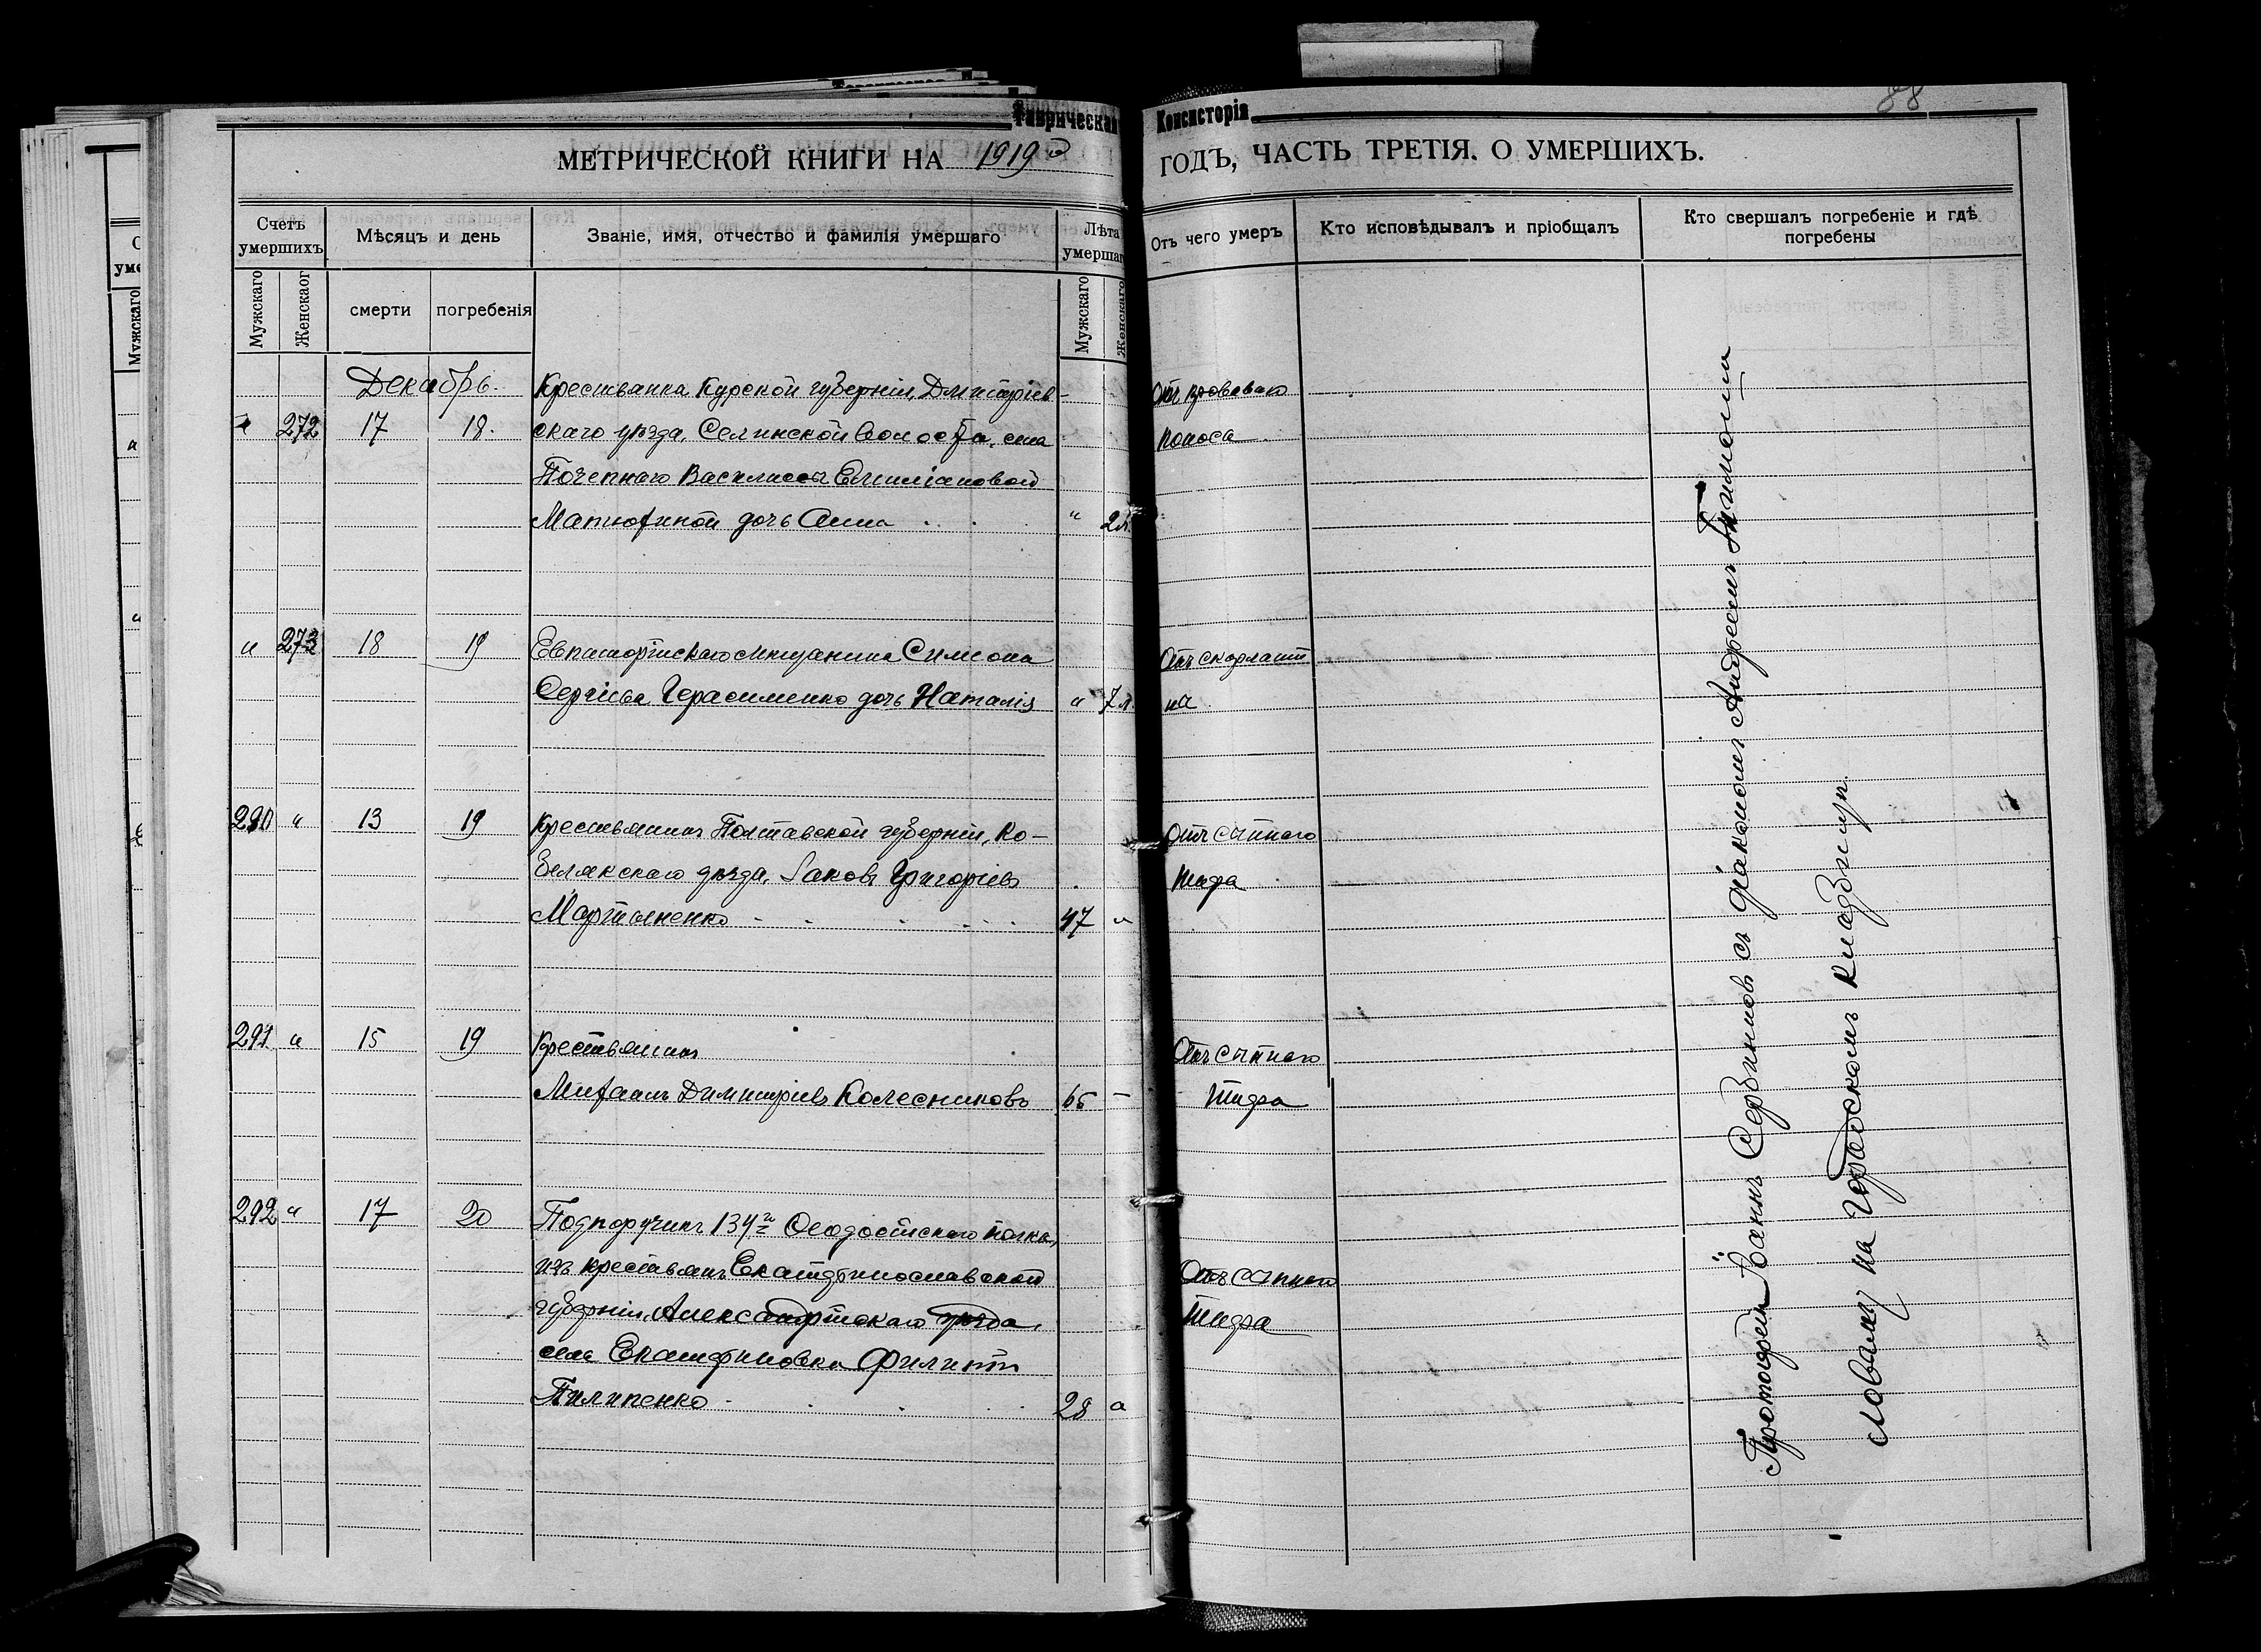 Таврическая Консисторія
88
МЕТРИЧЕСКОЙ КНИГИ НА 1919 й ГОДЪ, ЧАСТЬ ТРЕТІЯ. О УМЕРШИХЪ.
Счетъ умершихъ
Мѣсяцъ и день
Званіе, имя, отчество и фамилія умершаго
Лѣта умершаго
Отъ чего умеръ
Кто исповѣдывалъ и пріобщалъ
Кто свершалъ погребеніе и гдѣ погребены
Мужскаго
Женскаог
смерти
погребенія
Мужскаго
Женскаго
Декабрь.
Крестьянка Курской губерніи, Дмитріев- Отъ кроваваго
" 272 17 18. скаго уѣзда, Селинской волости, села поноса
Почепнаго Василисы Емиліановой
Матюхиной дочь Анна " 2 л.
" 273 18 19 Евпаторійскаго мѣщанина Симеона Отъ скарлати
Сергіева Герасименко дочь Наталія " 7 л. на
290 " 13 19 Крестьянинъ Полтавской губерніи, Ко- Отъ сыпнаго
белякскаго уѣзда, Іаковъ Григоріевъ тифа
Мартыненко 47 "
291 " 15 19 Крестьянинъ Отъ сыпнаго
Михаилъ Димитріевъ Колесниковъ 65 – тифа
292 " 17 20 Подпоручикъ 134го Ѳеодосійскаго полка,
изъ крестьянъ Екатеринославской Отъ сыпнаго
губерніи, Александрійскаго уѣзда, тифа
села Екатериновки Филиппъ
Пилипенко 28 "
Протоіерей Іоаннъ Сербиновъ съ діакономъ Андреемъ Тимоши
словаму на Городскомъ кладбищѣ.